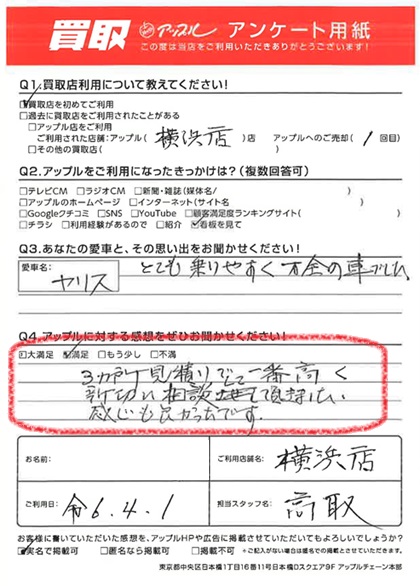 買取 アップル アンケート用紙
この度は当店をご利用いただきありがとうございます!
Q1.買取店利用について教えてください!
☑買取店を初めてご利用
□過去に買取店をご利用されたことがある
□アップル店をご利用
ご利用された店舗:アップル( 横浜店 )店 アップルへのご売却( 1 回目)
□その他の買取店( )
Q2.アップルをご利用になったきっかけは?(複数回答可)
□テレビCM □ラジオCM □新聞・雑誌(媒体名/ )
□アップルのホームページ □インターネット(サイト名 )
□Googleクチコミ □SNS □YouTube □顧客満足度ランキングサイト( )
□チラシ □利用経験があるので □紹介 ☑看板を見て
Q3.あなたの愛車と、その思い出をお聞かせください!
愛車名: ヤリス とても乗りやすく万全の車でした。
Q4.アップルに対する感想をぜひお聞かせください!
□大満足 ☑満足 □もう少し □不満
3か所見積りでとて一番高く
親切に相談させて頂けたい
感じも良かったです。
お名前: ご利用店舗名: 横浜店
ご利用日: 令6.4.1 担当スタッフ名: 高取
お客様に書いていただいた感想を、アップルHPや広告に掲載させていただいてもよろしいでしょうか?
☑実名で掲載可 □匿名なら掲載可 □掲載不可 *ご記入がない場合は匿名での掲載とさせていただきます。
東京都中央区日本橋1丁目16番11号日本橋Dスクエア9F アップルチェーン本部